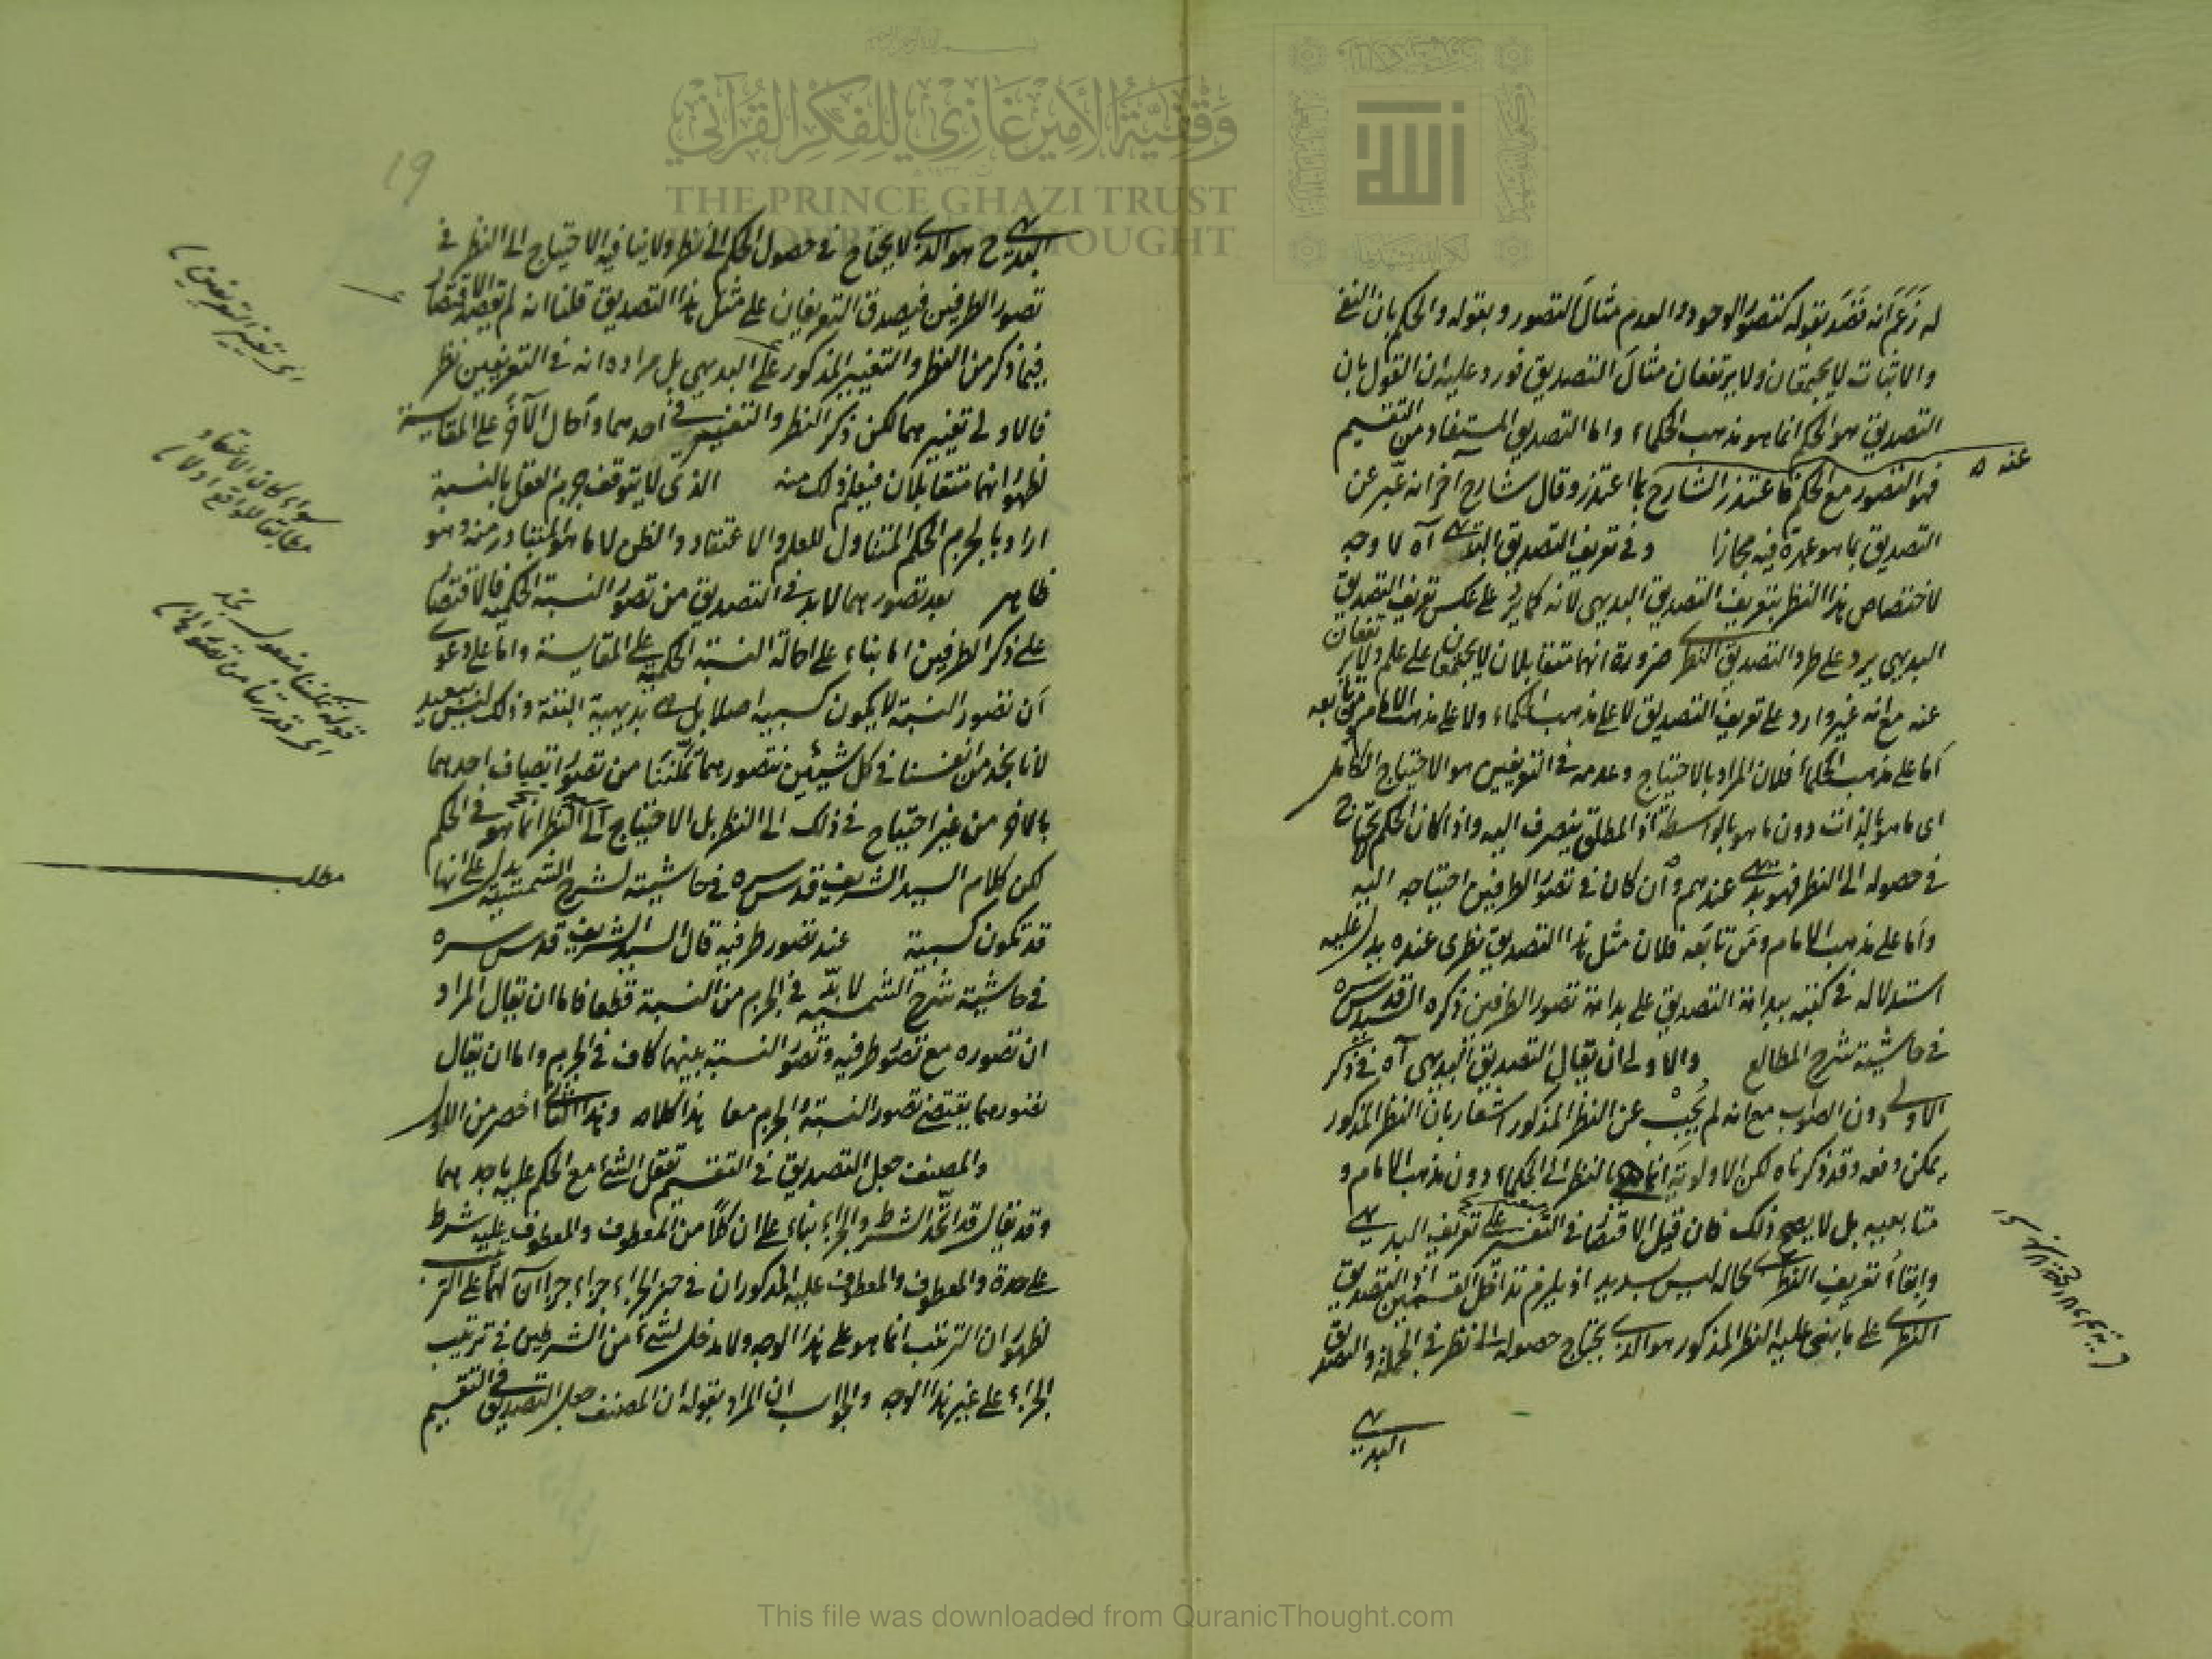 وقفية الأمير غازي للفكر القرآني
THE PRINCE GHAZI TRUST
THOUGHT
الله
له زعم انه قصد بقوله كتصور الوجود والعدم مثال التصور وبقوله والحكم بان النفي
والاثبات لا يجتمعان ولا يرتفعان مثال التصديق فورد عليه ان القول بان
التصديق هو الحكم انما هو مذهب الحكماء واما التصديق المستفاد من التقسيم
فهو التصور مع الحكم فاعتذر الشارح بما اعتذر وقال شارح آخر انه عبر عن
عنه
التصديق بما هو عمدة فيه مجازا وفي تعريف التصديق البديهي آه لا وجه
لاختصاص هذا النظر بتعريف التصديق البديهي لانه كما يرد على عكس تعريف التصديق
البديهي يرد على طرد التصديق النظري ضرورة انهما متقابلان لا يجتمعان على علم ولا يرتفعان
عنه مع انه غير وارد على تعريف التصديق لا على مذهب الحكماء ولا على مذهب الامام ومن تابعه
اما على مذهب الحكماء فلان المراد بالاحتياج وعدمه في التعريفين هو الاحتياج الكامل
اى ما هو بالذات دون ما هو بالواسطة اذ المطلق ينصرف اليه واذا كان الحكم يحتاج
في حصوله الى النظر فهو عندهم وان كان في تصور الطرفين احتياجه اليه
واما على مذهب الامام ومن تابعه فلان مثل هذا التصديق نظرى عنده يدل عليه
استدلاله في كتبه ببداهة التصديق على بداهة تصور الطرفين ذكره السيد قدس سره
في حاشيته شرح المطالع والاولى ان يقال التصديق البديهي آه في ذكر
الاولى دون الصواب مع انه لم يجب عن النظر المذكور اشعار بان النظر المذكور
يمكن دفعه وقد ذكرناه لكن الاولوية انما هي بالنظر الى الحكماء دون مذهب الامام و
متابعيه بل لا يصح ذلك فان قيل الاقتصار في التغيير على تعريف البديهي
وابقاء تعريف النظرى بحاله ليس بسديد اذ يلزم تداخل القسمين اذ التصديق
النظرى على ما بنى عليه النظر المذكور هو الذى يحتاج حصوله الى نظر في الجملة والتصديق
البديهي
19
البديهي ح هو الذى لا يحتاج في حصول الحكم الى نظر ولا ينافيه الاحتياج الى النظر في
تصور الطرفين فيصدق التعريفان على مثل هذا التصديق قلنا انه لم يقصد الاقتصار
فيما ذكر من النظر والتغيير المذكور على البديهي بل مراده انه في التعريفين نظر
فالاولى تغييرهما لكن ذكر النظر والتغيير في احدهما واحال الآخر على المقايسة
لظهور انهما متقابلان فيعلم ذلك منه الذى لا يتوقف جزم العقل بالنسبة
اراد بالجزم الحكم المتناول للعلم والاعتقاد والظن لا ما هو المتبادر منه وهو
ظاهر بعد تصورهما لا بد في التصديق من تصور النسبة الحكمية فالاقتصار
على ذكر الطرفين اما بناء على احالة النسبة الحكمية على المقايسة واما على دعوى
ان تصور النسبة لا يكون كسبيه اصلا بل هي بديهية البتة وذلك ليس ببعيد
لانا نجد من انفسنا في كل شيئين نتصورهما تمكننا من تصور اتصاف احدهما
بالآخر من غير احتياج في ذلك الى النظر بل الاحتياج الى النظر انما هو في الحكم
لكن كلام السيد الشريف قدس سره في حاشيته لشرح الشمسية يدل على انها
قد تكون كسبية عند تصور طرفيه قال السيد الشريف قدس سره
في حاشيته شرح الشمسية لا بد في الجزم من النسبة قطعا فاما ان يقال المراد
ان تصوره مع تصور طرفيه وتصور النسبة بينهما كاف في الجزم واما ان يقال
تصورهما يقتضى تصور النسبة والجزم معا هذا كلامه وهذا الثاني اخصر من الاول
والمصنف جعل التصديق في التقسيم تعقل الشئ مع الحكم عليه باحدهما
وقد يقال قد اتحد الشرط والجزاء بناء على ان كلا من المعطوف والمعطوف عليه شرط
على حدة والمعطوف والمعطوف عليه المذكوران في حيز الجزاء جزاء جزاان لهما على الترتيب
لظهور ان الترتب انما هو على هذا الوجه ولا مدخل لشئ من الشرطين في ترتيب
الجزاء على غير هذا الوجه والجواب ان المراد بقوله ان المصنف جعل التصديق في التقسيم
اى تغيير التعريفين
سواء كان الاعتقاد
مطابقا للواقع او لا
قوله تمكننا مفعول نجد
اى قدرتنا من تصور
مطلب
This file was downloaded from QuranicThought.com